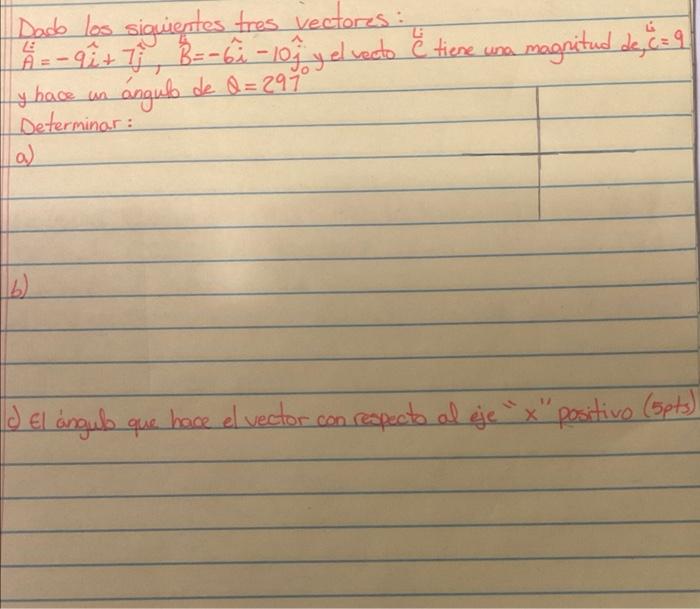 Dado los siguientes tres vectores:
A = -9î + 7ĵ, B = -6î - 10ĵ y el vecto C tiene una magnitud de, C = 9
y hace un ángulo de θ = 297°
Determinar:
a)
b)
c) El ángulo que hace el vector con respecto al eje "x" positivo (5pts)